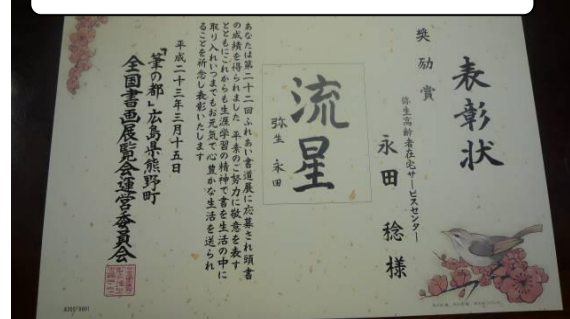 表彰状
奨励賞
弥生高齢者在宅サービスセンター
永田 稔 様
流星
弥生 永田
あなたは第二十二回ふれあい書道展に応募され頭書
の成績を得られました 平素のご努力に敬意を表す
とともにこれからも生涯学習の精神で書を生活の中に
取り入れいつまでもお元気で心豊かな生活を送られ
ることを祈念し表彰いたします
平成二十三年三月十五日
「筆の都」広島県熊野町
全国書画展覧会運営委員会